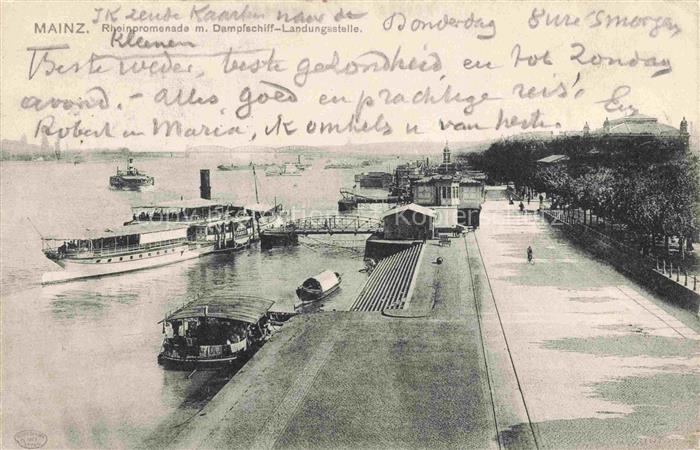 Ik zende Kaarten naar de Donderdag 8 ure 's morgen
MAINZ. Rheinpromenade m. Dampfschiff-Landungsstelle.
kleinen
Beste weder, beste gezondheid en tot Zondag
avond. - alles goed en prachtige reis!
Robert en Maria, ik omhels u van herte.